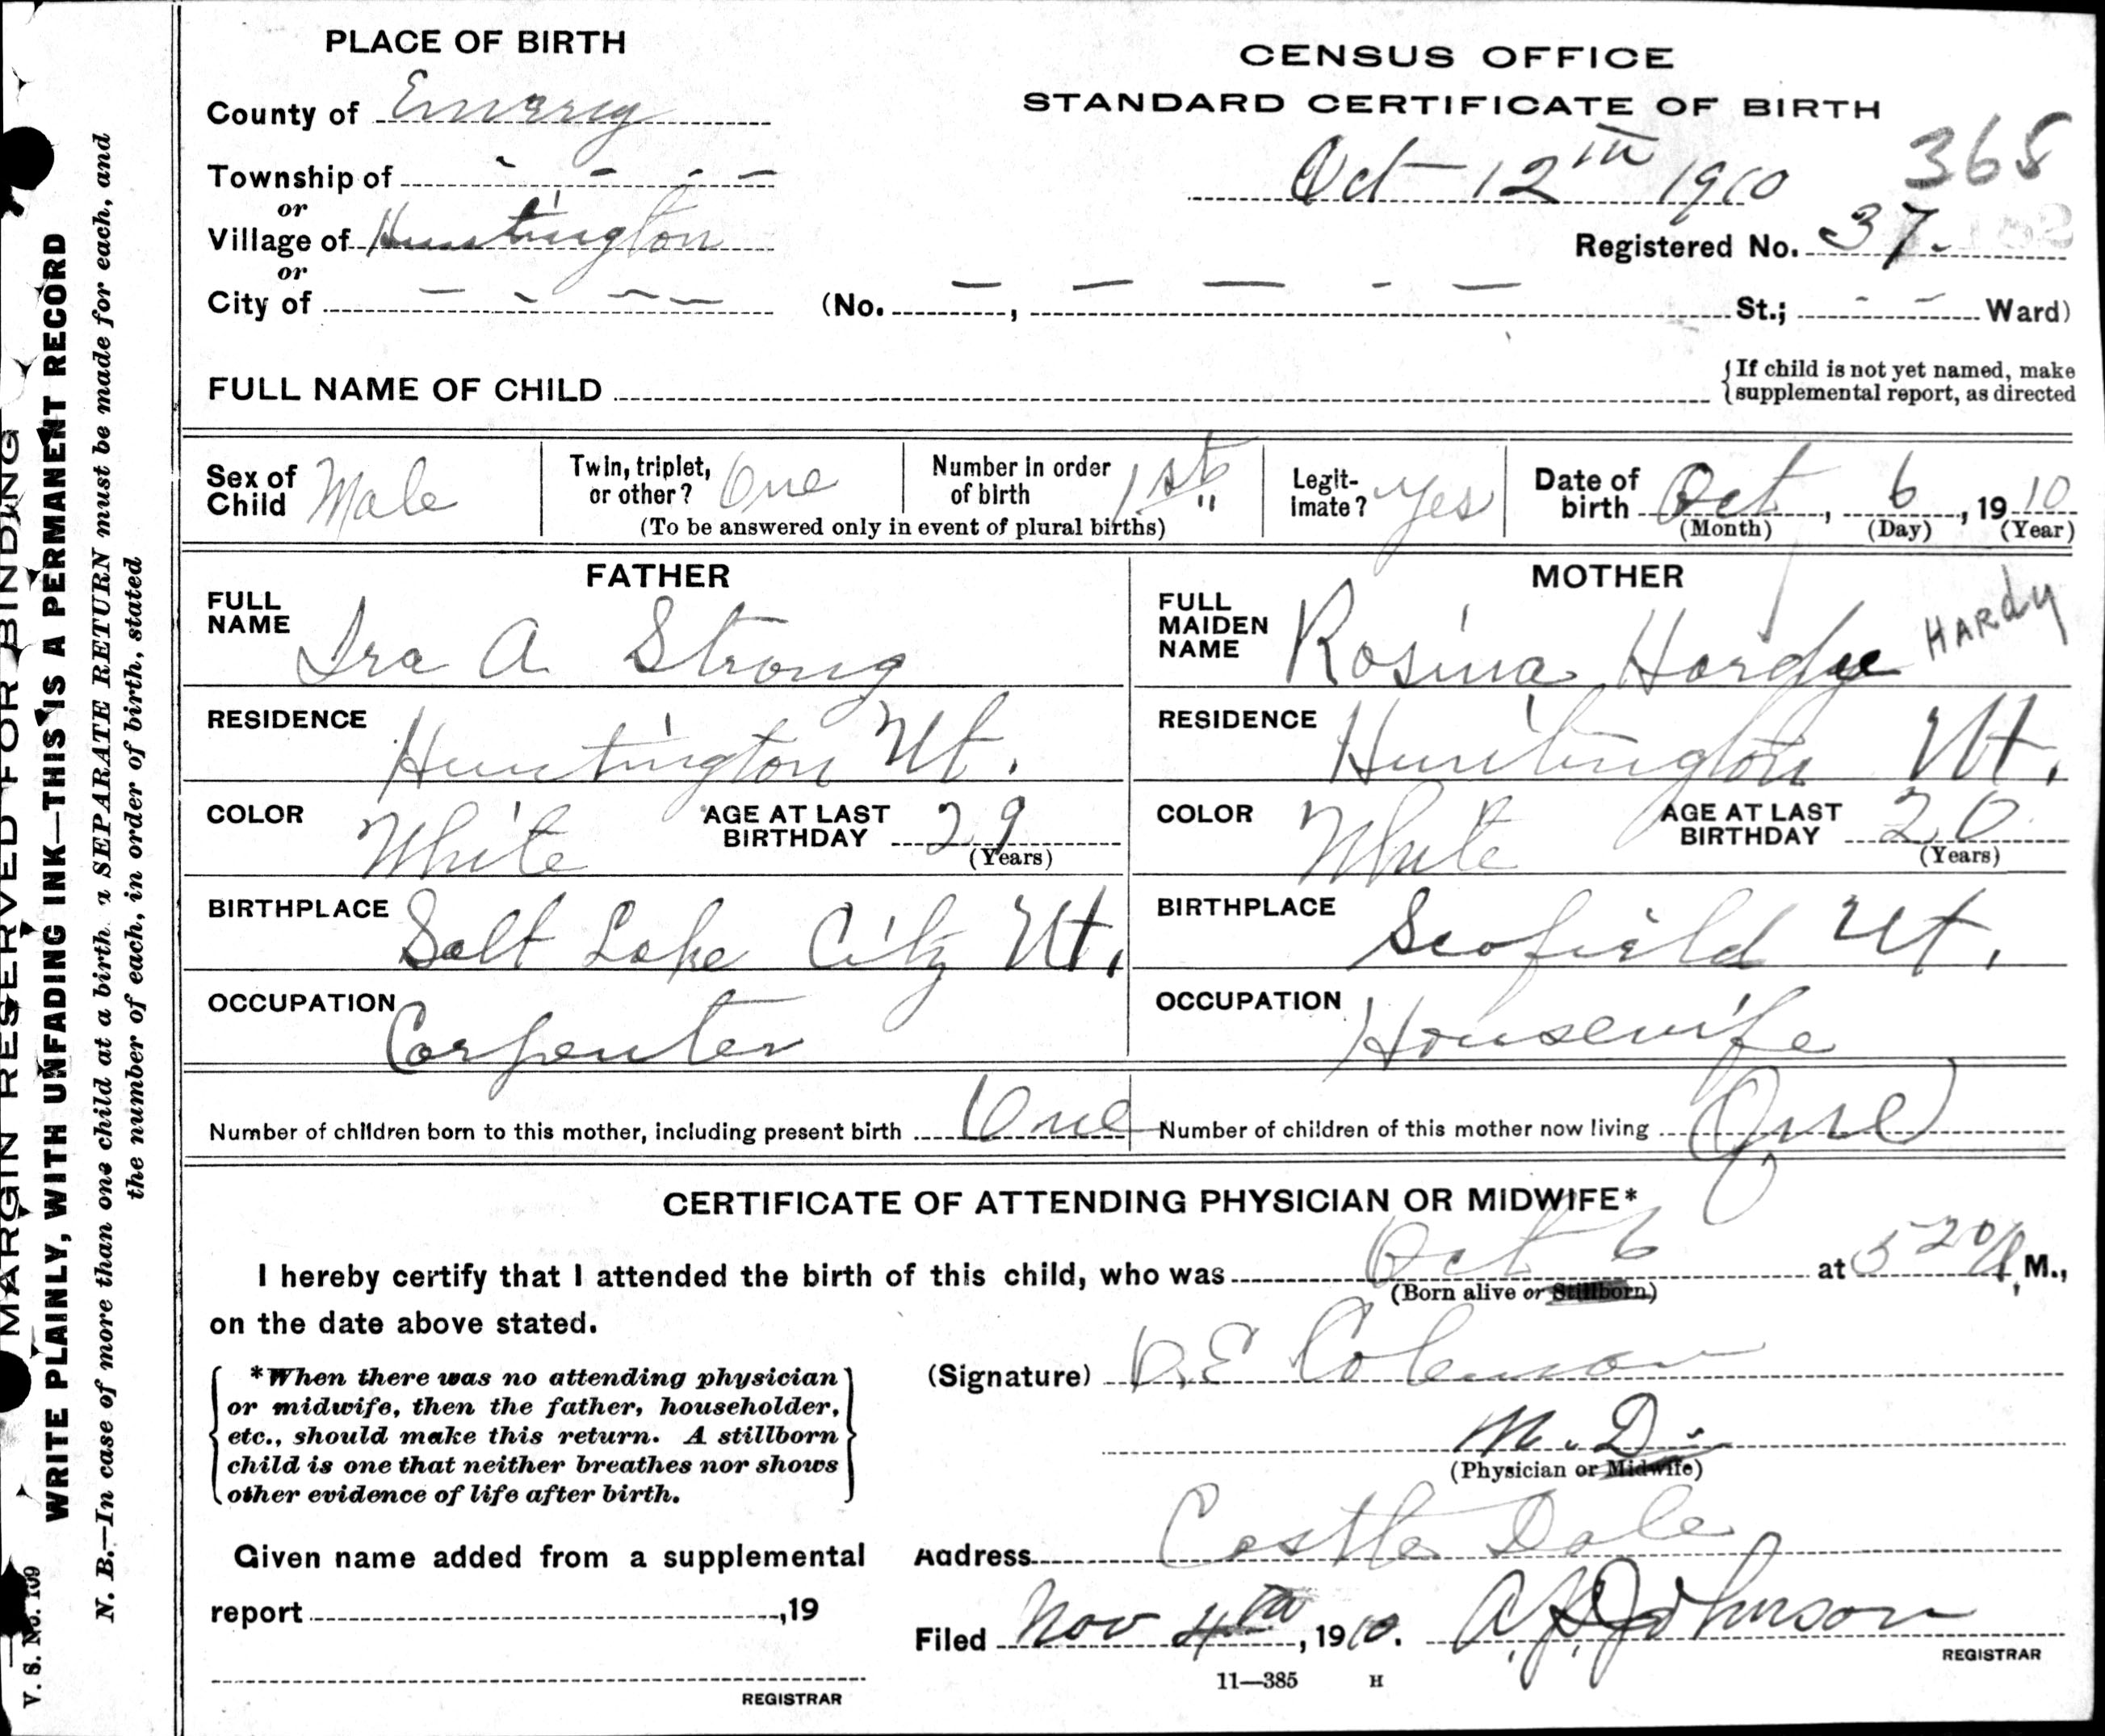 PLACE OF BIRTH
County of Emery
Township of
or
Village of Huntington
or
City of
CENSUS OFFICE
STANDARD CERTIFICATE OF BIRTH
Oct 12th 1910
365
Registered No. 37.
(No. , St.; Ward)
FULL NAME OF CHILD
{If child is not yet named, make
{supplemental report, as directed
Sex of Child Male
Twin, triplet, or other? One
Number in order of birth 1st
(To be answered only in event of plural births)
Legit-imate? Yes
Date of birth Oct, 6, 1910
(Month) (Day) (Year)
FATHER
FULL NAME Ira A Strong
RESIDENCE Huntington Ut.
COLOR White
AGE AT LAST BIRTHDAY 29
(Years)
BIRTHPLACE Salt Lake City Ut.
OCCUPATION Carpenter
MOTHER
FULL MAIDEN NAME Rosina HARDY
RESIDENCE Huntington Ut.
COLOR White
AGE AT LAST BIRTHDAY 20
(Years)
BIRTHPLACE Scofield Ut.
OCCUPATION Housewife
Number of children born to this mother, including present birth One
Number of children of this mother now living One
CERTIFICATE OF ATTENDING PHYSICIAN OR MIDWIFE*
I hereby certify that I attended the birth of this child, who was Oct 6 at 5 20 M.,
(Born alive or Stillborn)
on the date above stated.
*When there was no attending physician
or midwife, then the father, householder,
etc., should make this return. A stillborn
child is one that neither breathes nor shows
other evidence of life after birth.
(Signature)
M.D.
(Physician or Midwife)
Given name added from a supplemental
report ,19
REGISTRAR
Address Castle Dale
Filed Nov 4th, 1910. Johnson
REGISTRAR
11—385 H
MARGIN RESERVED FOR BINDING
WRITE PLAINLY, WITH UNFADING INK—THIS IS A PERMANENT RECORD
N. B.—In case of more than one child at a birth a SEPARATE RETURN must be made for each, and
the number of each, in order of birth, stated
V. S. No. 109